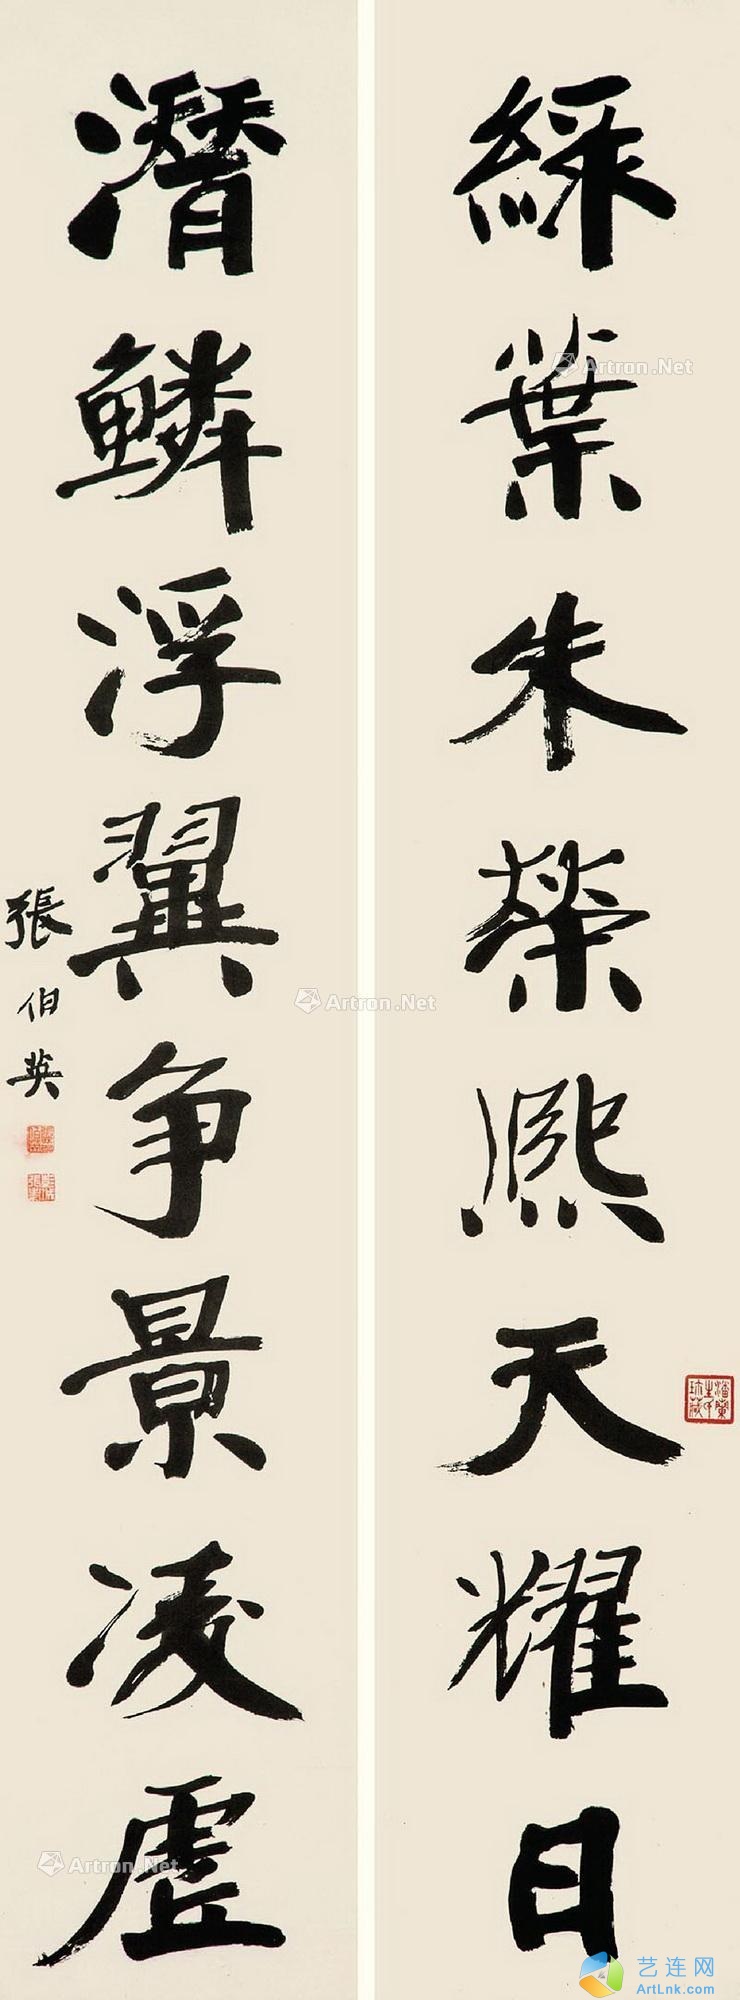 綵葉朱榮熙天耀日
潛鱗浮翼争景凌虛
張伯英
Artron.Net
Artron.Net
Artron.Net
艺连网
ArtLnk.com